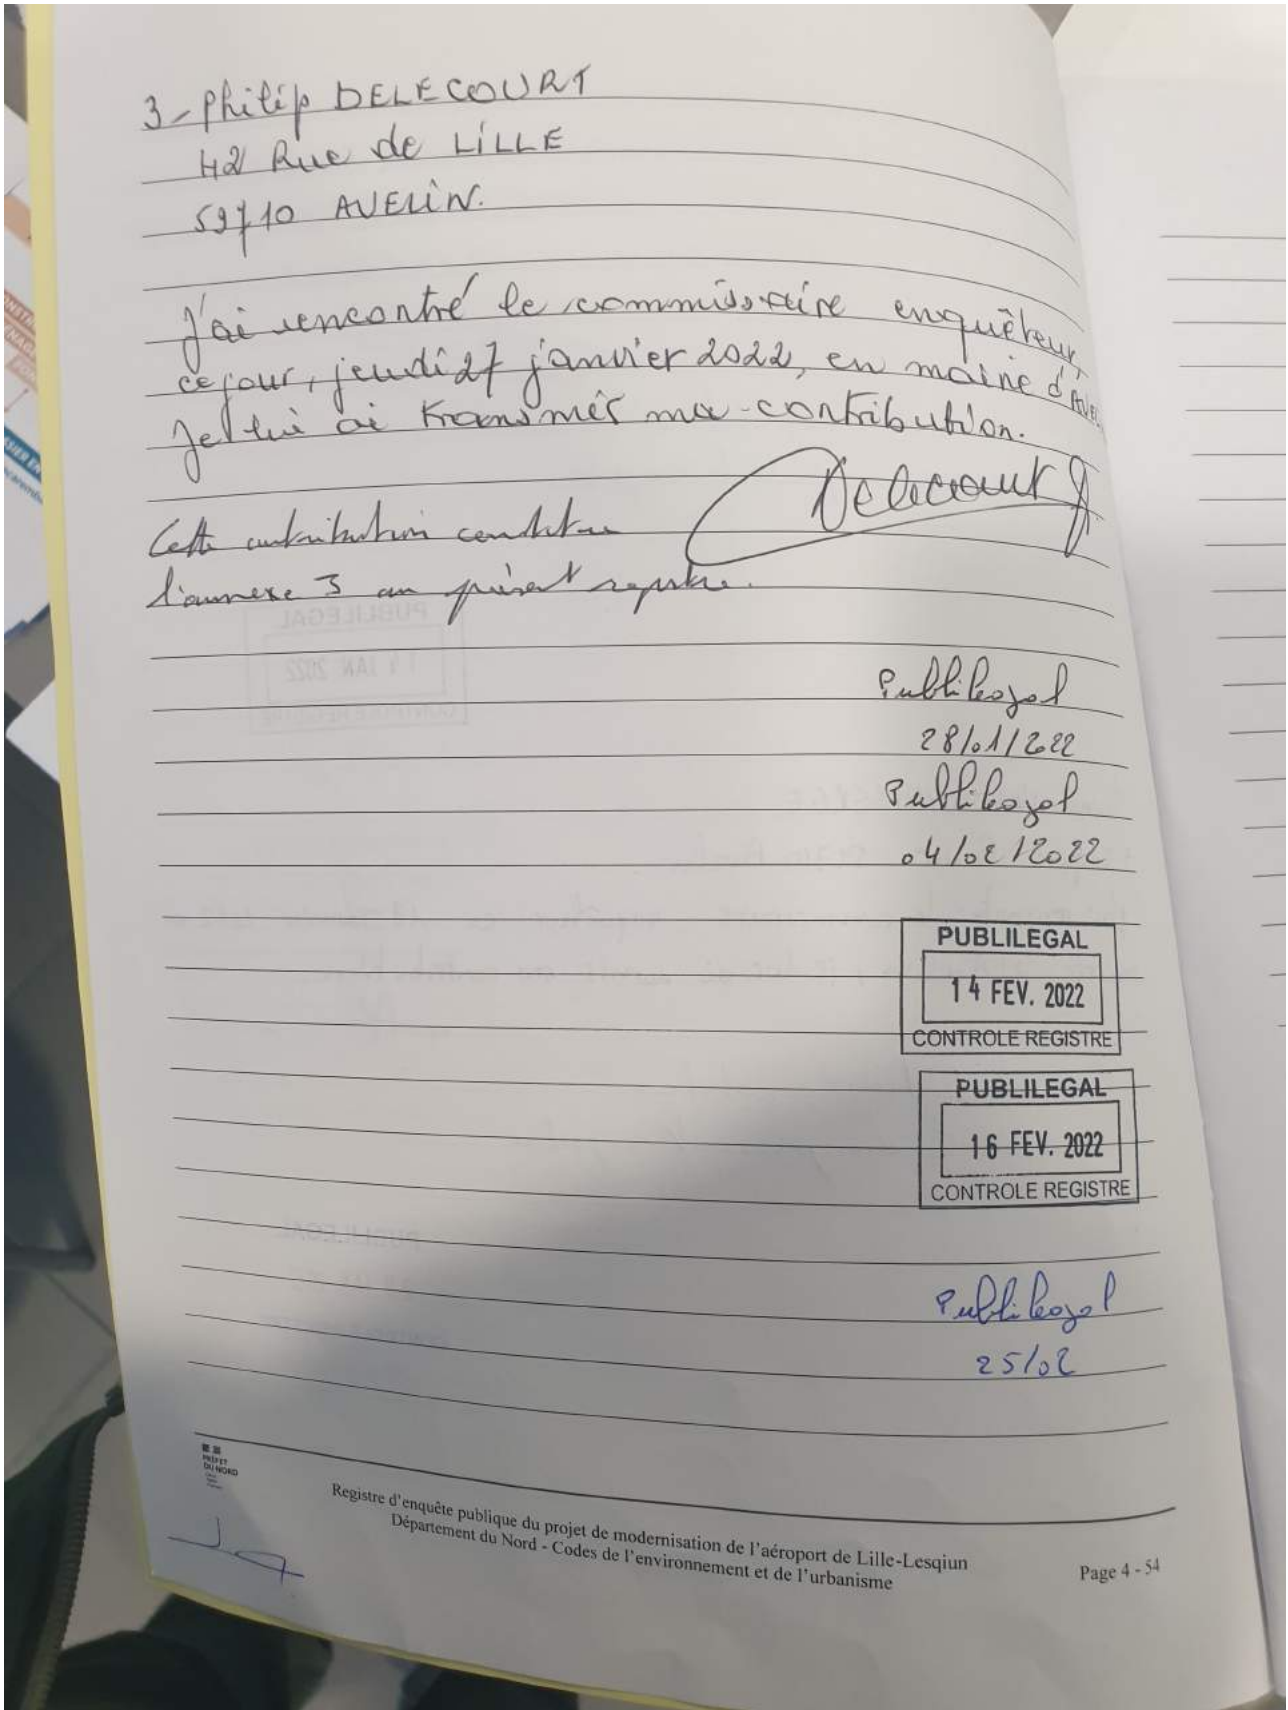 3 - Philip DELECOURT
42 Rue de LILLE
59710 AVELIN.
J'ai rencontré le commissaire enquêteur,
ce jour, jeudi 27 janvier 2022, en mairie d'AVEL
Je lui ai transmis ma contribution.
Delecourt
Cette contribution constitue
l'annexe 3 au présent registre.
Publilegal
28/01/2022
Publilegal
04/02/2022
PUBLILEGAL
14 FEV. 2022
CONTROLE REGISTRE
PUBLILEGAL
16 FEV. 2022
CONTROLE REGISTRE
Publilegal
25/02
PRÉFET
DU NORD
Registre d'enquête publique du projet de modernisation de l'aéroport de Lille-Lesqiun
Département du Nord - Codes de l'environnement et de l'urbanisme
Page 4 - 54